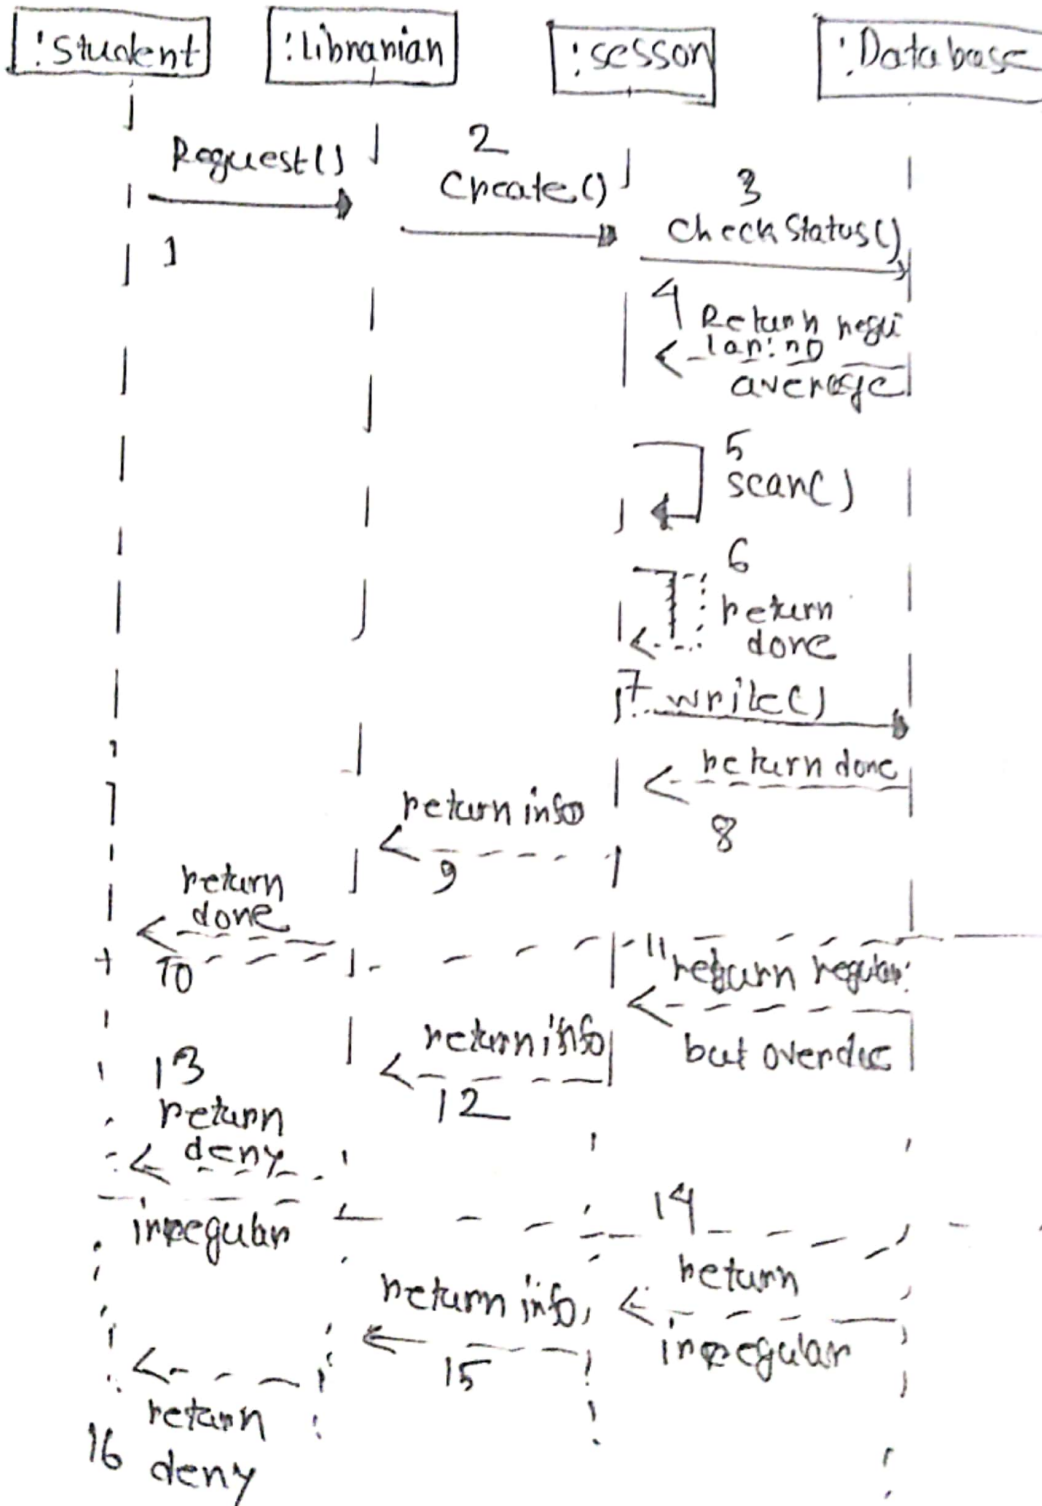 :Student
:Librarian
:sesson
:Database
Request()
1
2
Create()
3
Check Status()
4
Return regu
lar: no
average
5
scan()
6
return
done
7 write()
return done
8
return info
9
return
done
10
11
return regular
but overdue
return info
12
13
return
deny
irregular
14
return
irregular
return info
15
return
16 deny